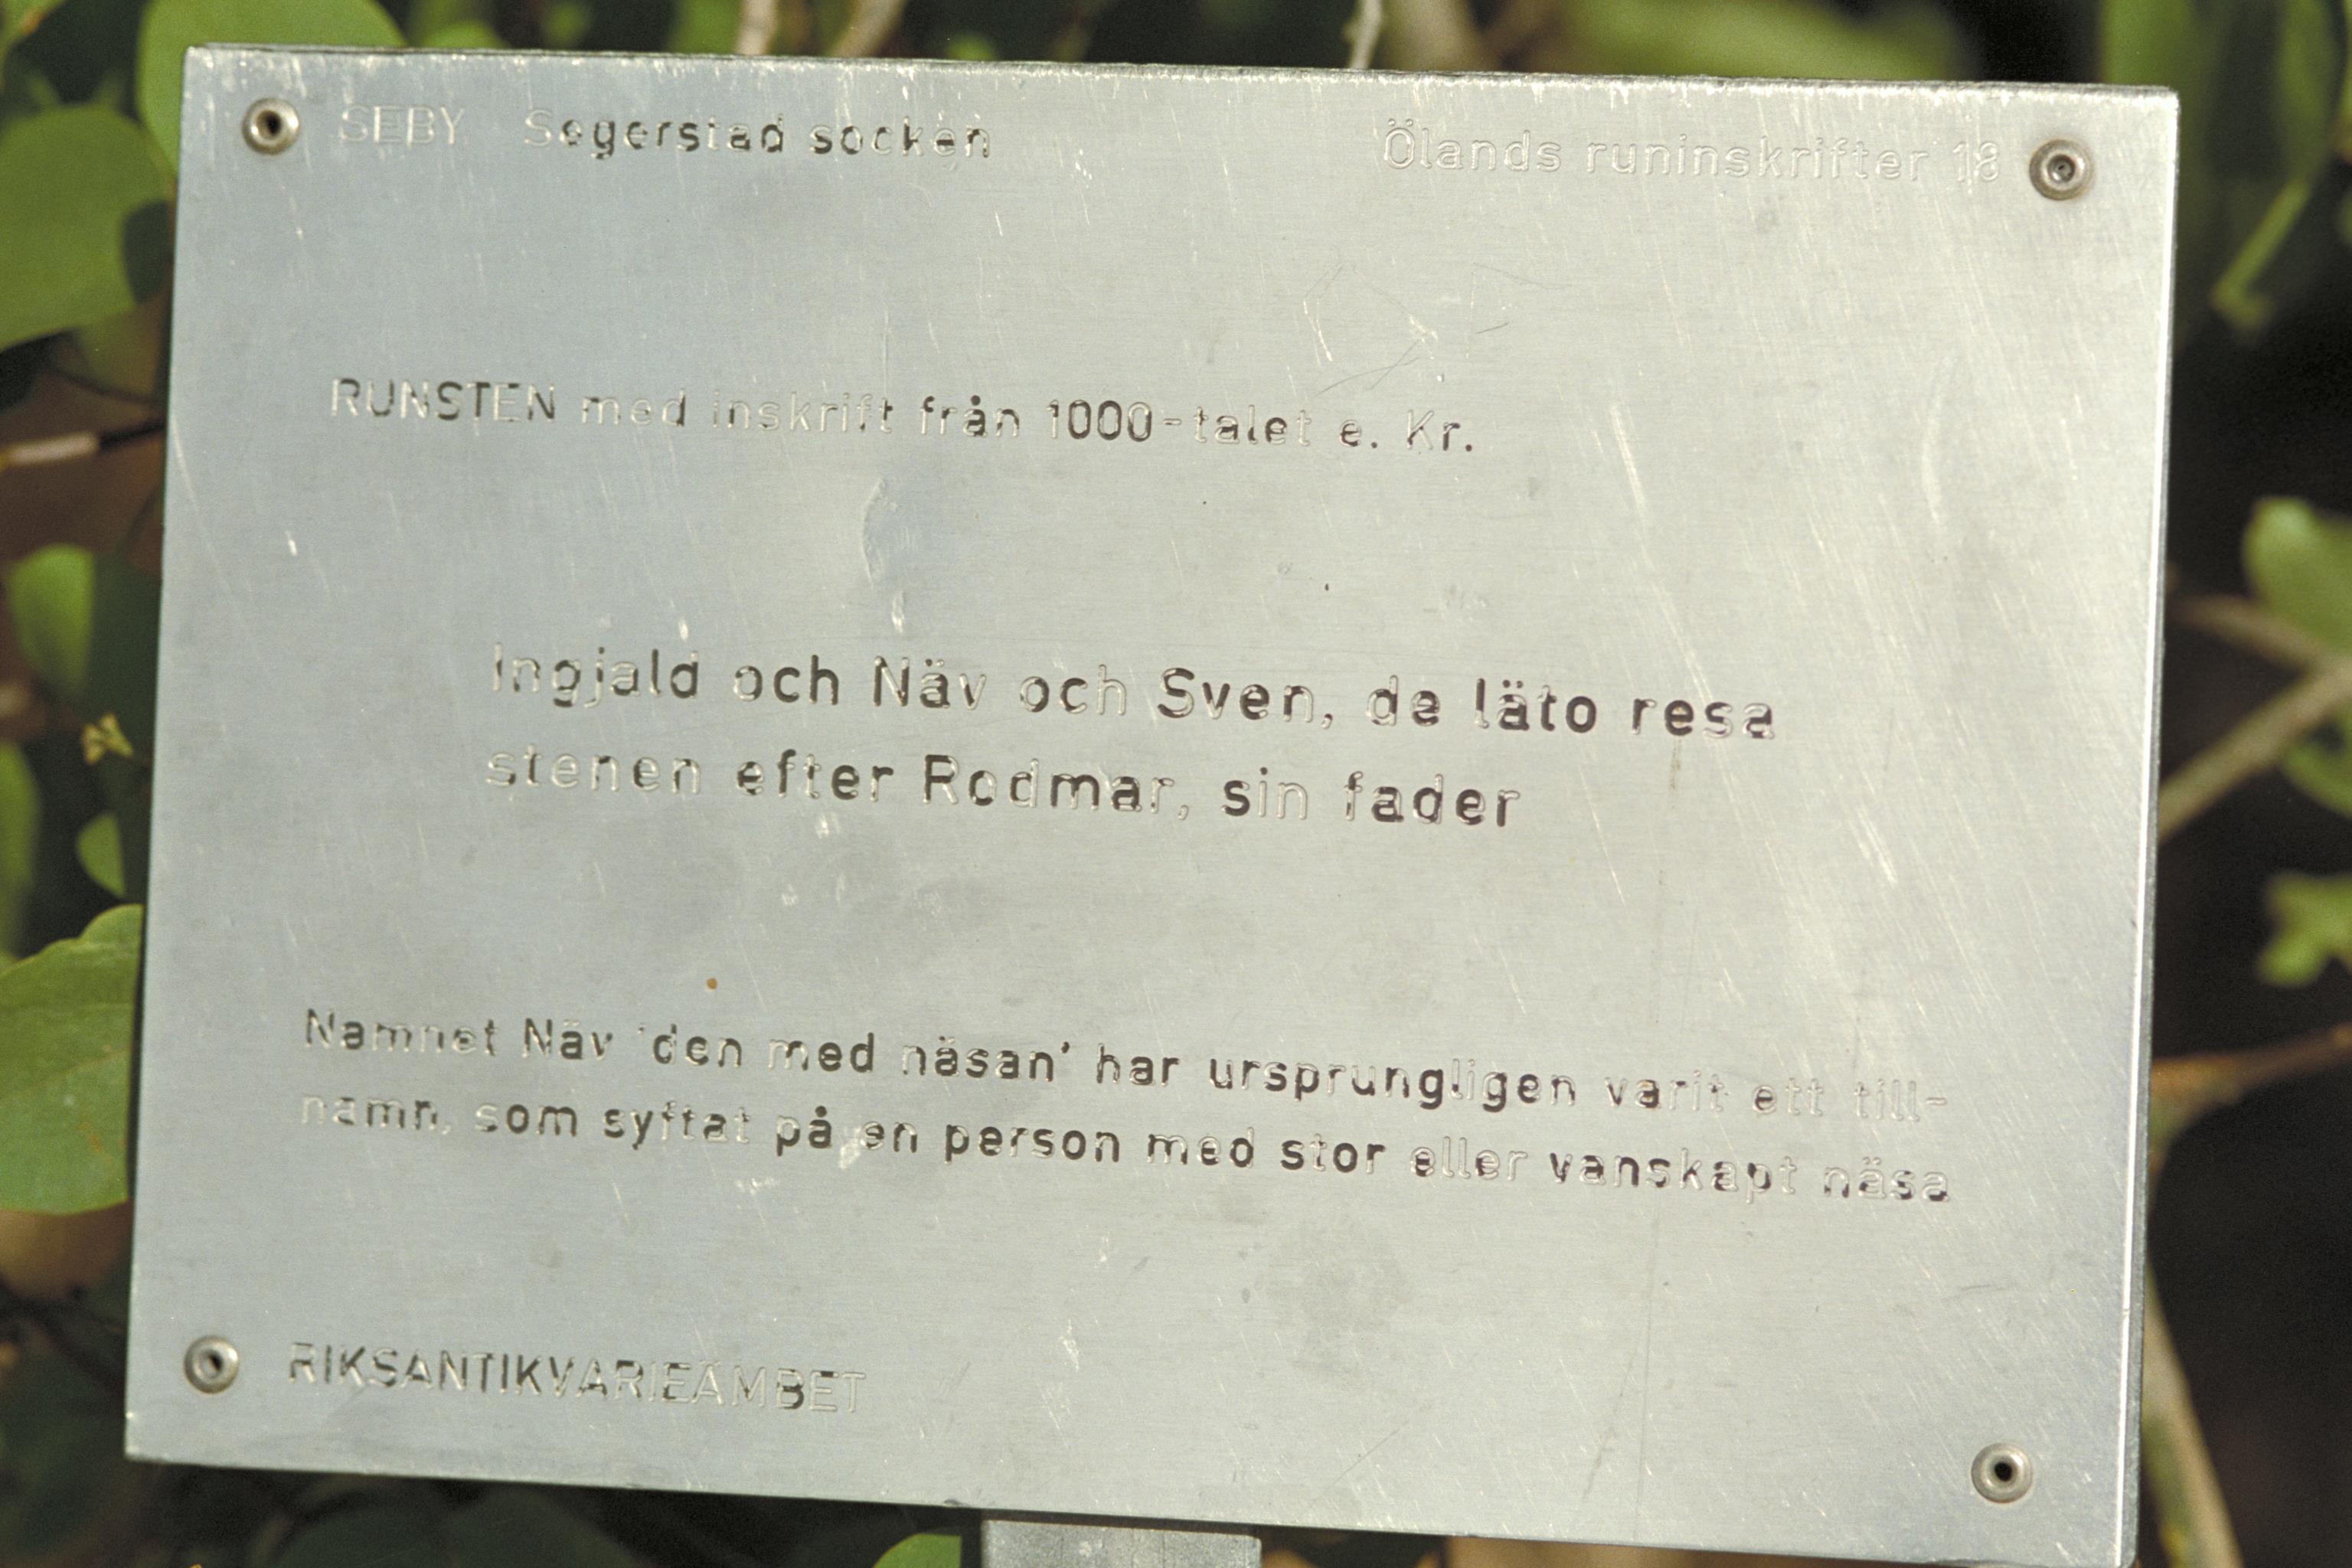 SEBY Segerstad socken
Ölands runinskrifter 18
RUNSTEN med inskrift från 1000-talet e. Kr.
Ingjald och Näv och Sven, de läto resa
stenen efter Rodmar, sin fader
Namnet Näv 'den med näsan' har ursprungligen varit ett till-
namn, som syftat på en person med stor eller vanskapt näsa
RIKSANTIKVARIEÄMBET